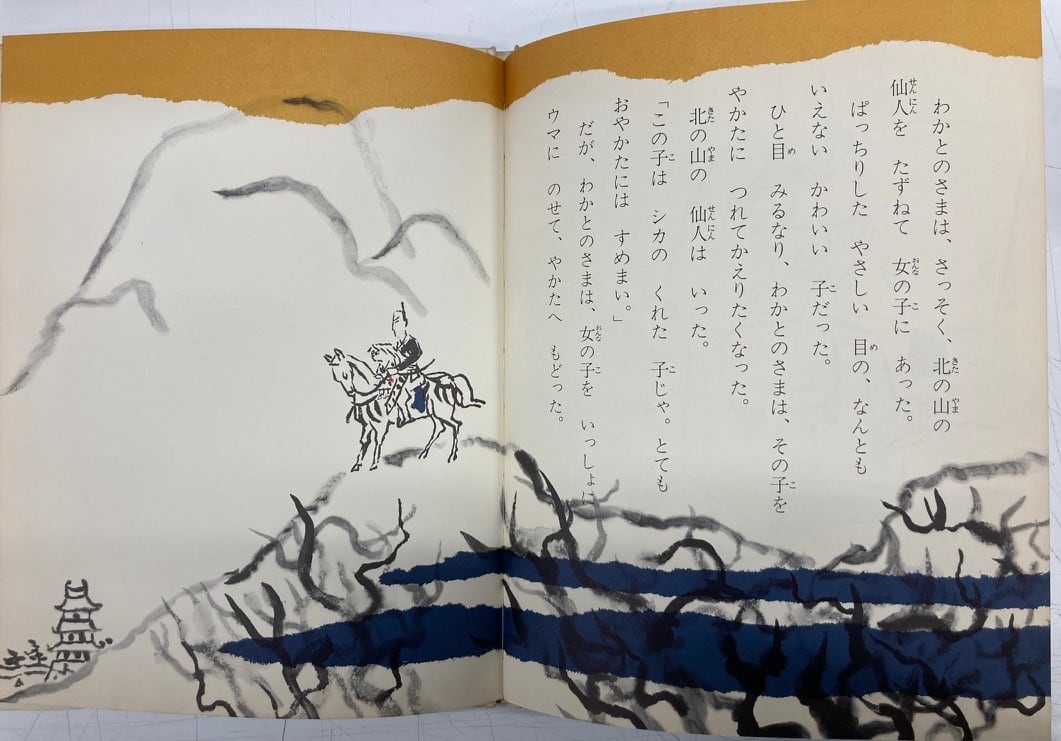 わかとのさまは、さっそく、北の山の
仙人を　たずねて　女の子に　あった。
ぱっちりした　やさしい　目の、なんとも
いえない　かわいい　子だった。
ひと目　みるなり、わかとのさまは、その子を
やかたに　つれてかえりたくなった。
北の山の　仙人は　いった。
「この子は　シカの　くれた　子じゃ。とても
おやかたには　すめまい。」
だが、わかとのさまは、女の子を　いっしょに
ウマに　のせて、やかたへ　もどった。